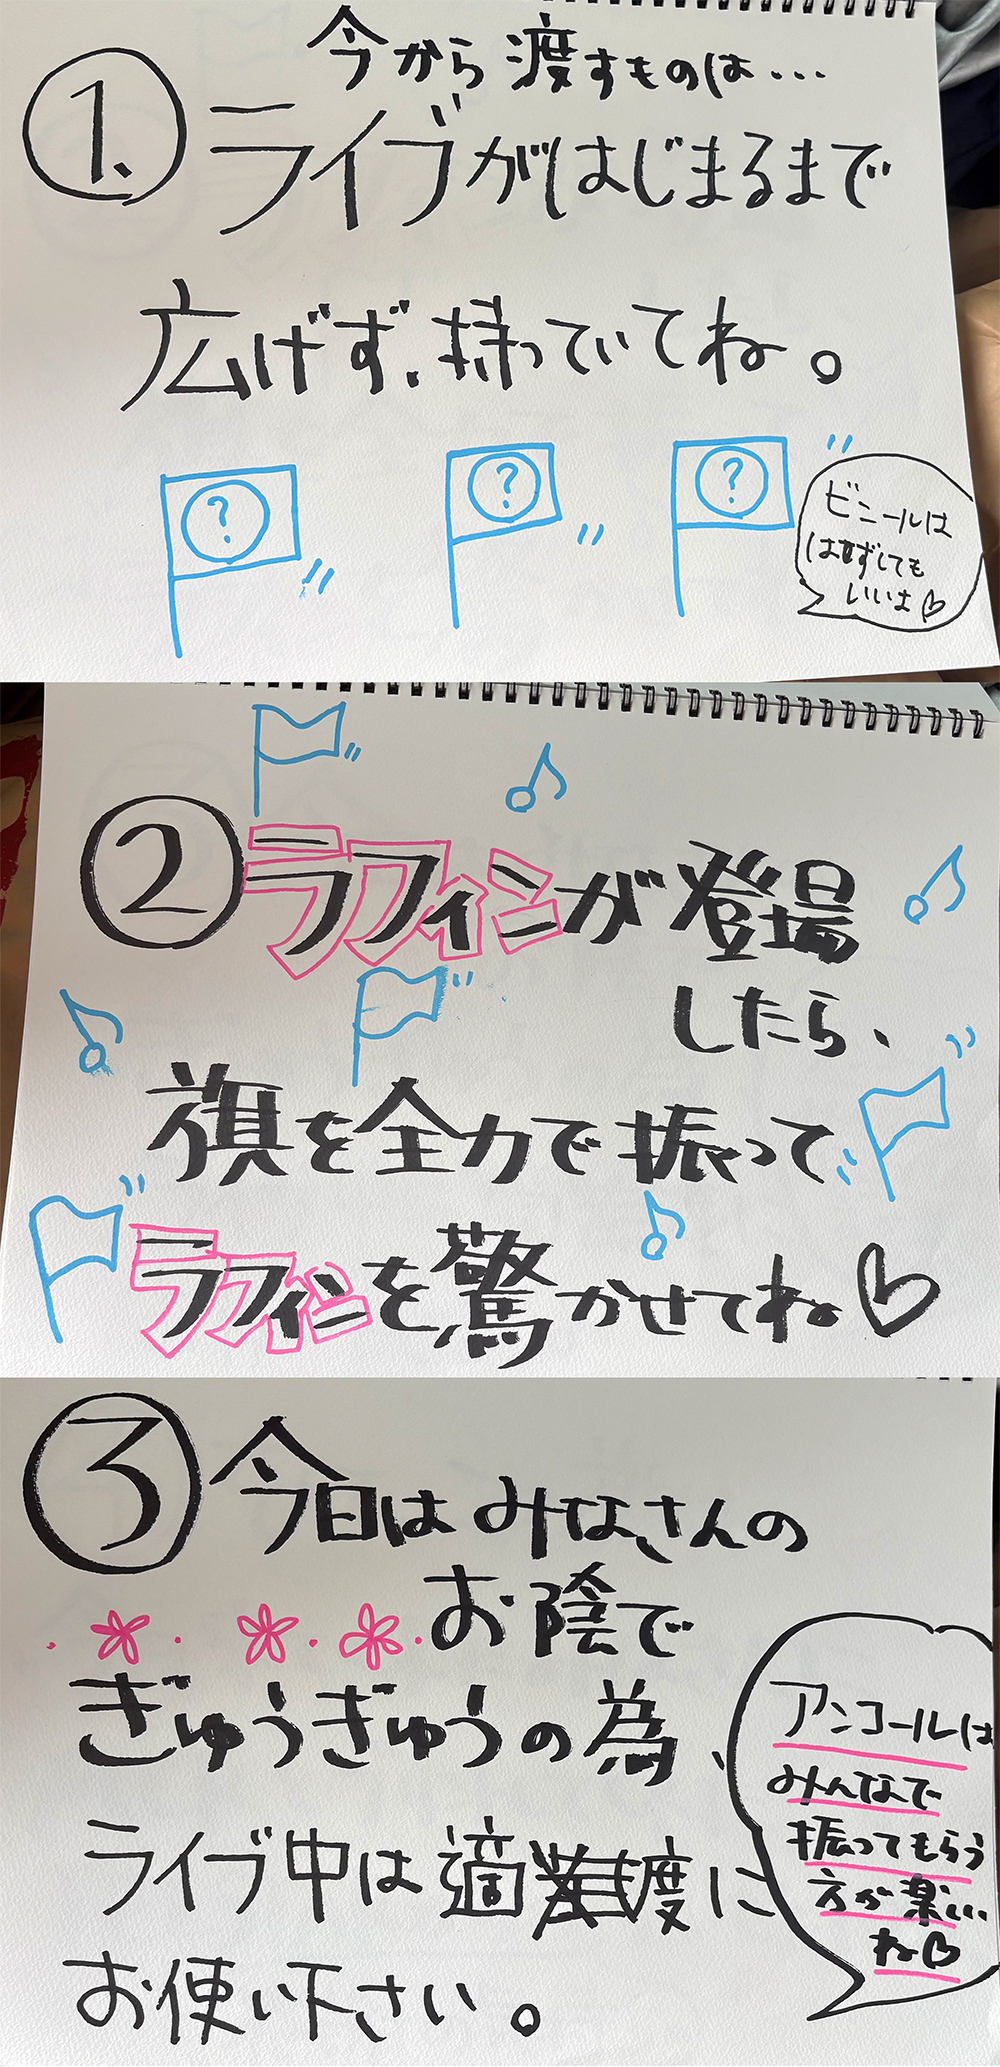 今から渡すものは…
①. ライブがはじまるまで
広げず、持っていてね。
?
?
?
ビニールは
はずしても
いいよ♡
② ラフィンが登場
したら、
旗を全力で振って
ラフィンを驚かせてね♡
③ 今日はみなさんの
お陰で
ぎゅうぎゅうの為、
ライブ中は適度に
お使い下さい。
アンコールは
みんなで
振ってもらう
方が楽しい
ね♡